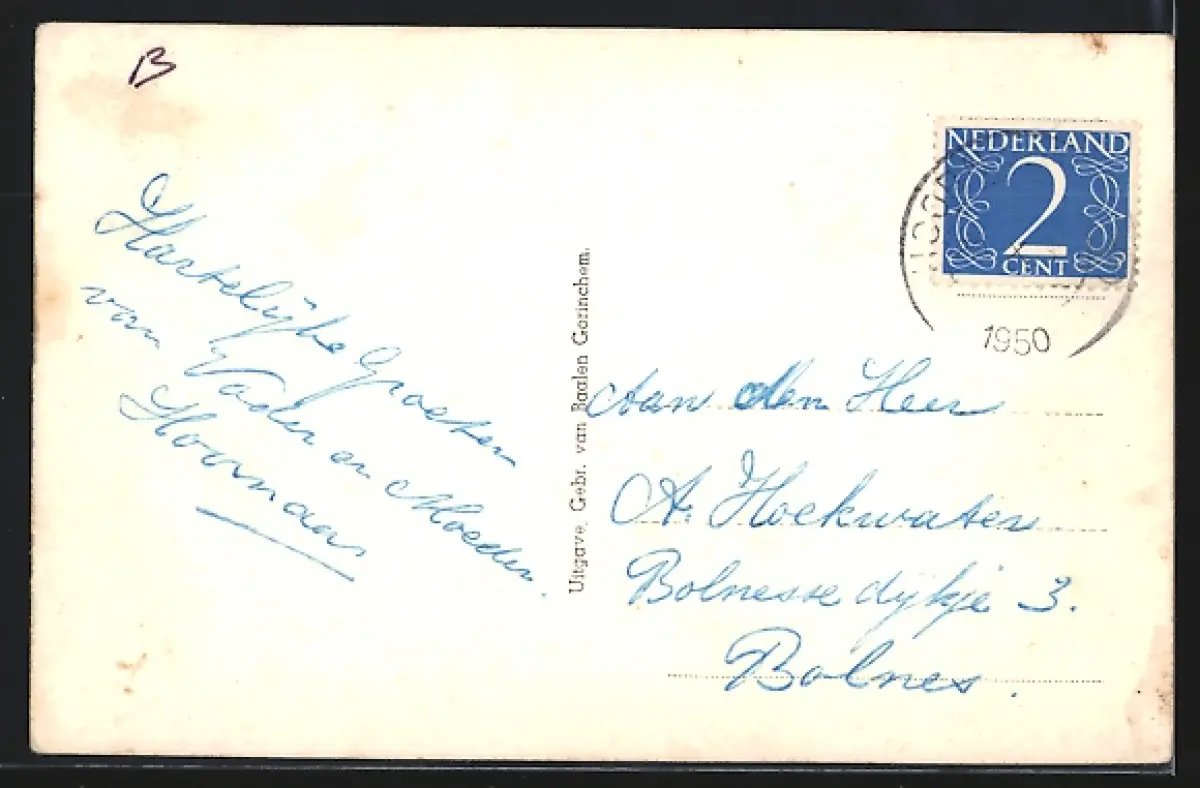 B
Hartelijke Groeten
van Vader en Moeder.
Hoornaar
Uitgave. Gebr. van Baalen Gorinchem.
NEDERLAND
2
CENT
1950
Aan den Heer
A. Hoekwater
Bolnesse dijkje 3.
Bolnes.